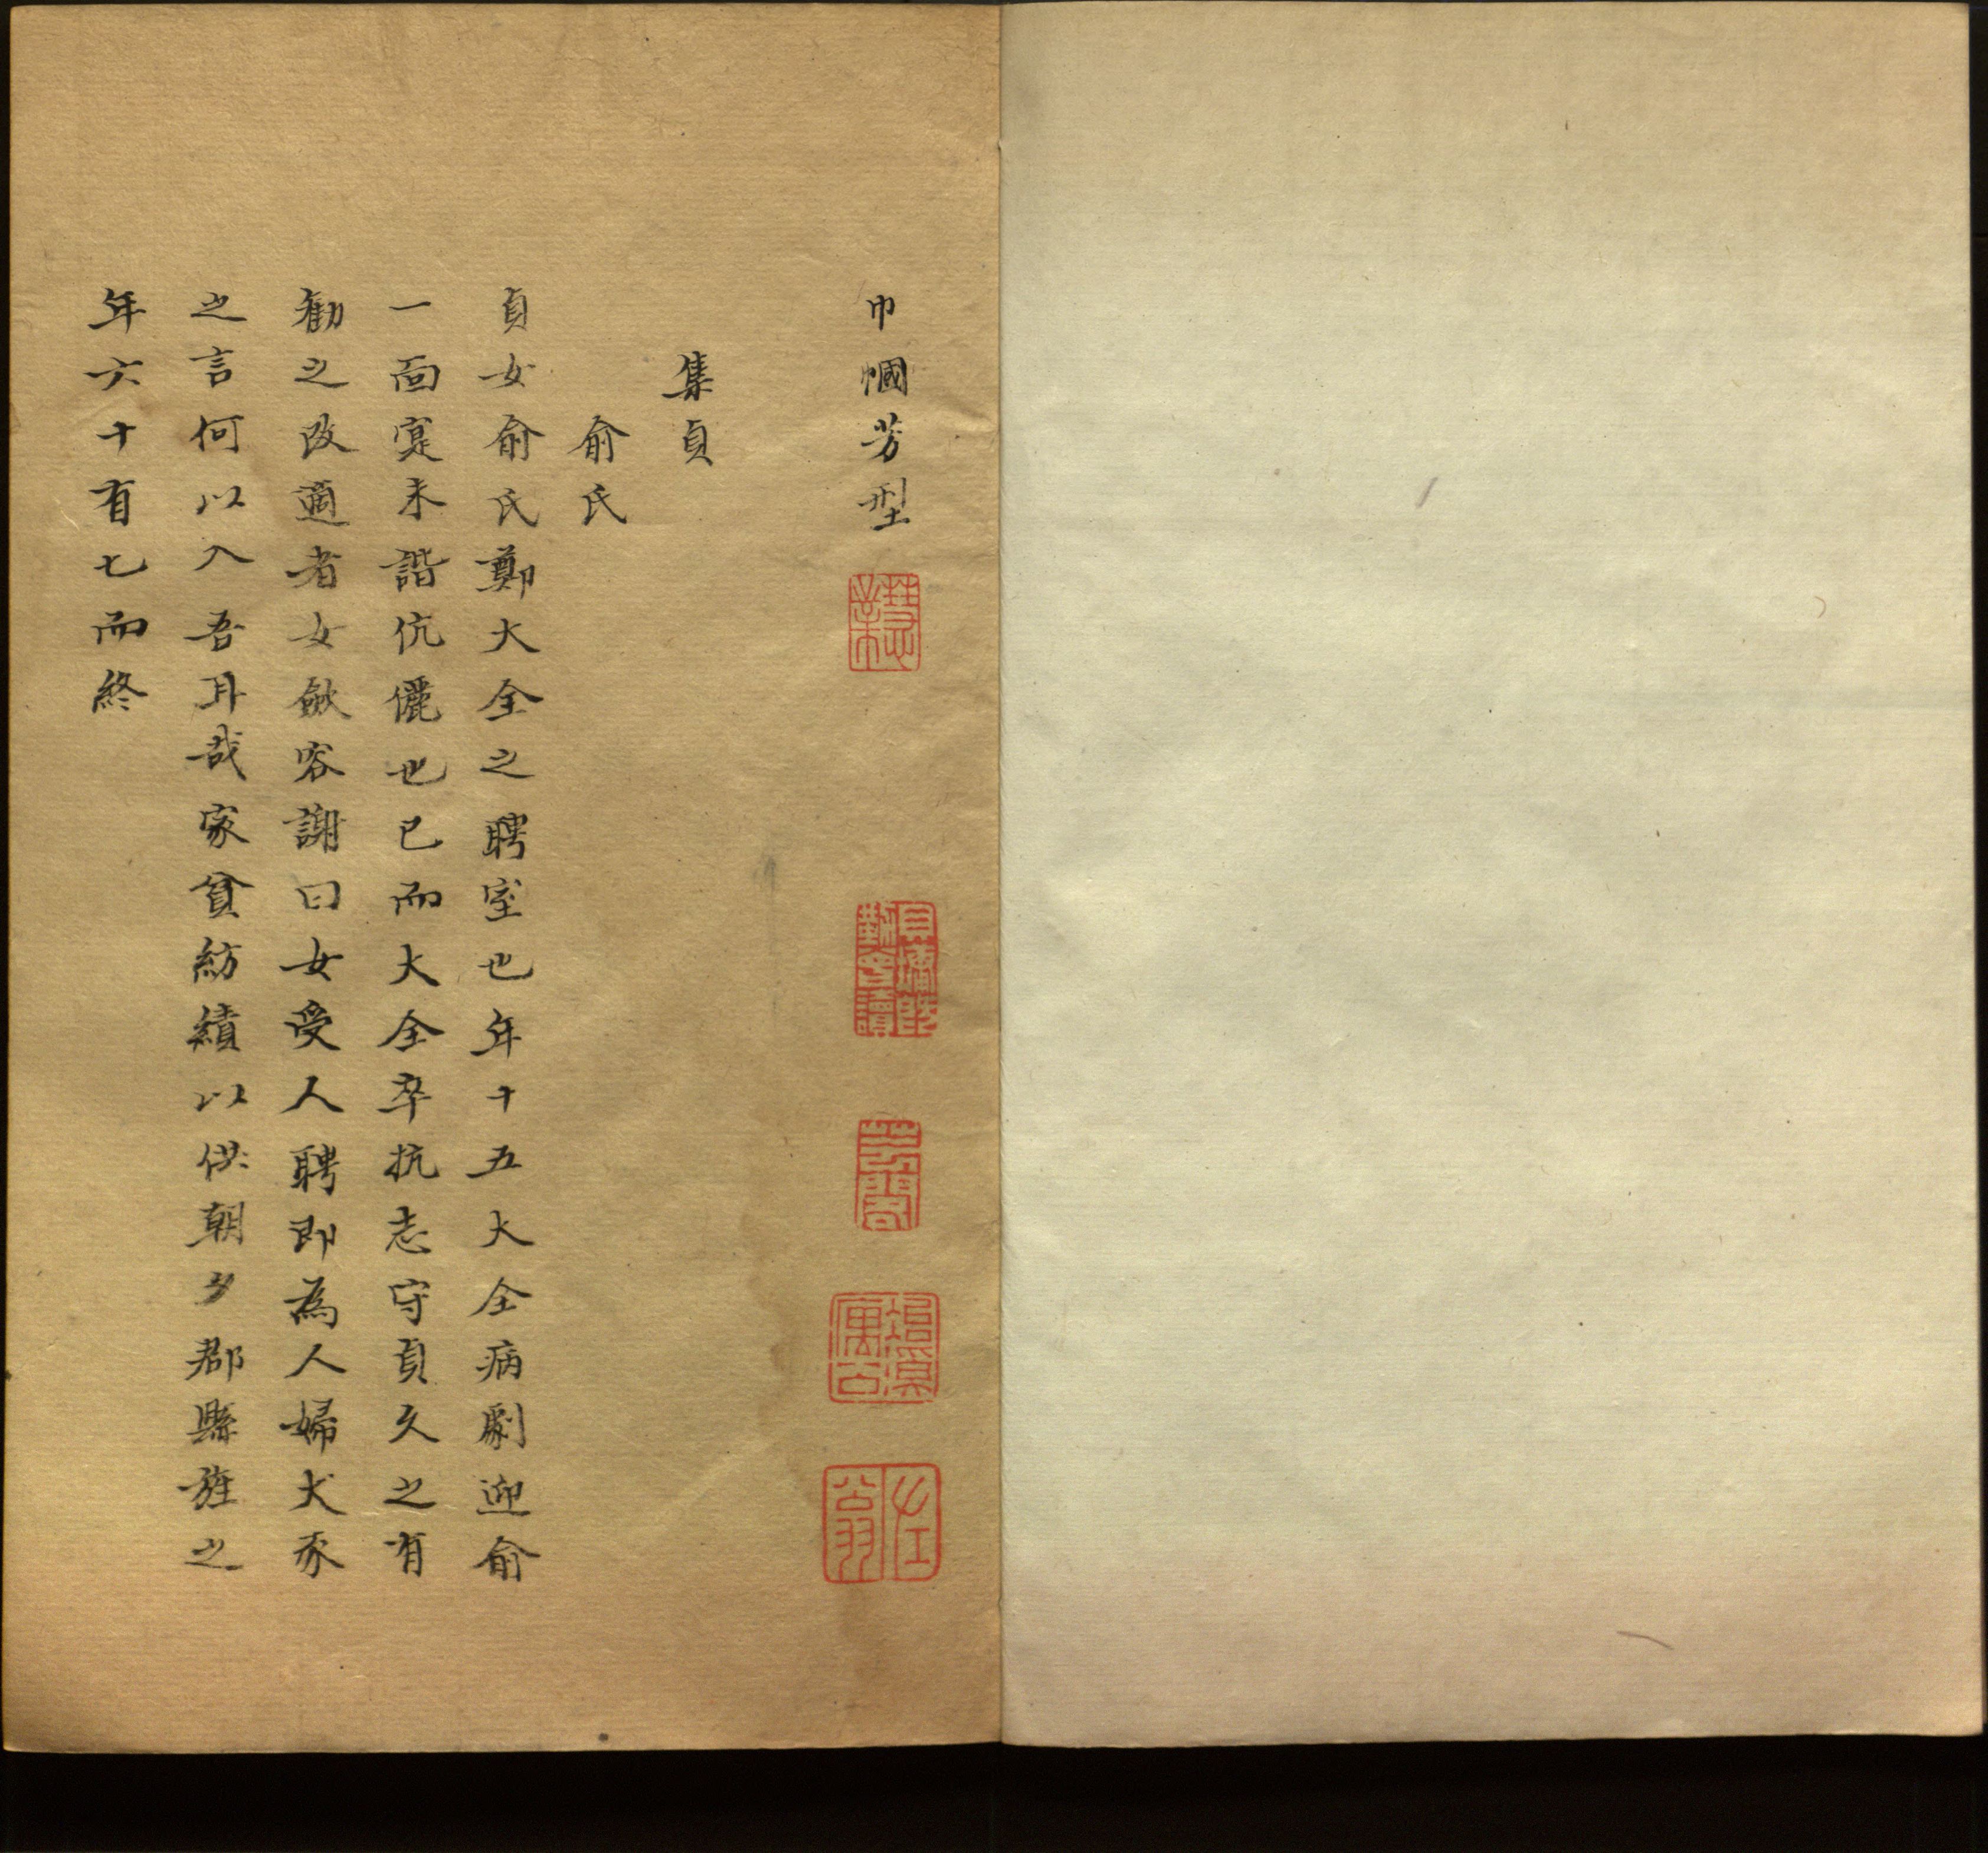 巾幗芳型
集貞
俞氏
貞女俞氏鄭大全之聘室也年十五大全病劇迎俞
一面寔未諧伉儷也已而大全卒抗志守貞久之有
勸之改適者女斂容謝曰女受人聘即為人婦犬豕
之言何以入吾耳哉家貧紡績以供朝夕郡縣旌之
年六十有七而終
左翁